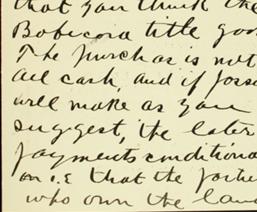 that you think the
Bobicora title good
The purchas is not
all cash, and if poss
will make as you
suggest, the later
payments conditiona
on i.e that the parties
who own the land